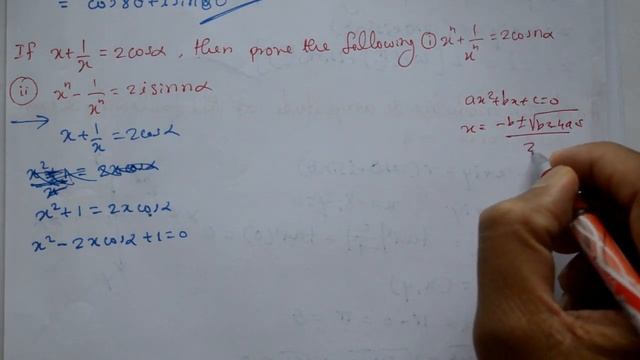 = cos80+isin80
If x+1/x = 2cosα, then prove the following ① xⁿ+1/xⁿ=2cosnα
ⓘⓘ xⁿ-1/xⁿ=2isinnα
→ x+1/x=2cosα
x²+1=2xcosα
x²-2xcosα+1=0
ax²+bx+c=0
x=-b±√b²-4ac
2